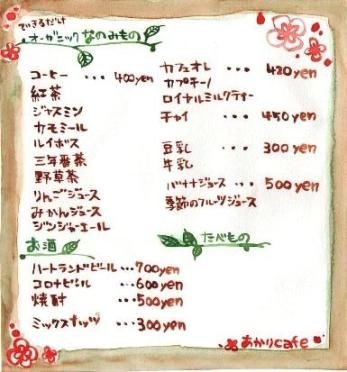 できるだけ
オーガニック なのみもの
コーヒー ・・・ 400yen
紅茶
ジャスミン
カモミール
ルイボス
三年番茶
野草茶
りんごジュース
みかんジュース
ジンジャーエール
カフェオレ ・・・ 420yen
カプチーノ
ロイヤルミルクティー
チャイ ・・・ 450yen
豆乳 ・・・ 300yen
牛乳
バナナジュース ・・・ 500yen
季節のフルーツジュース
お酒
ハートランドビール ・・・700yen
コロナビール ・・・600yen
焼酎 ・・・500yen
ミックスナッツ ・・・300yen
たべもの
あかりcafe